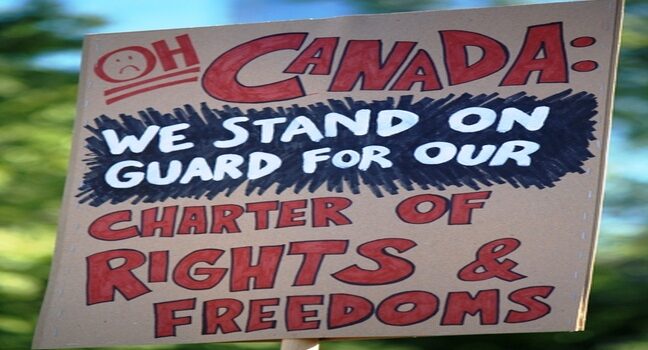 OH CANADA:
WE STAND ON
GUARD FOR OUR
CHARTER OF
RIGHTS &
FREEDOMS